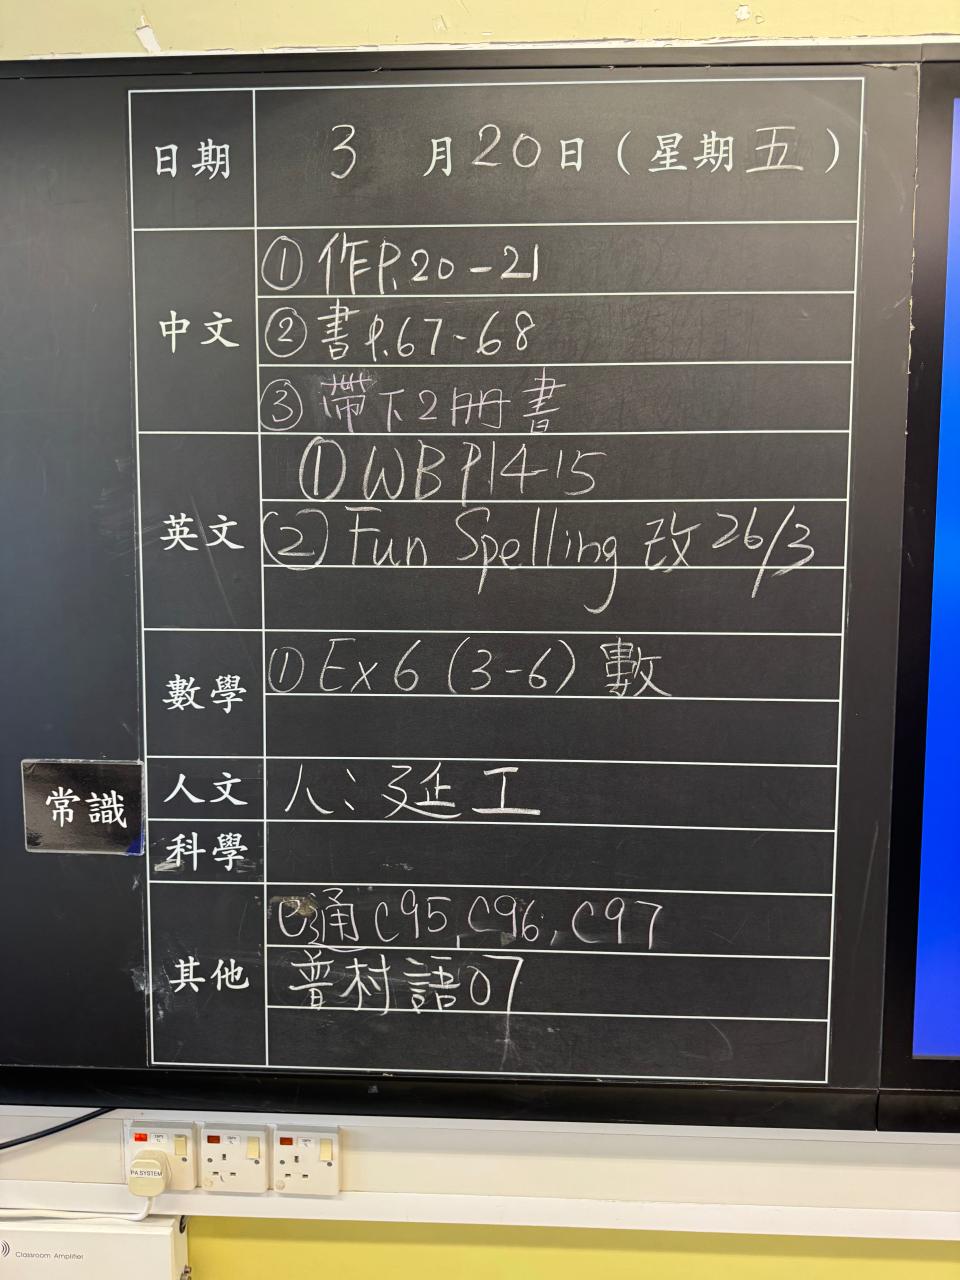 日期 3月20日（星期五）
中文
①作P.20-21
②書P.67-68
③帶下2冊書
英文
①WB P.14-15
②Fun Spelling 改26/3
數學
①Ex 6 (3-6) 數
常識
人文 人：延工
科學
其他
通C95, C96, C97
普村語07
PA SYSTEM
Classroom Amplifier